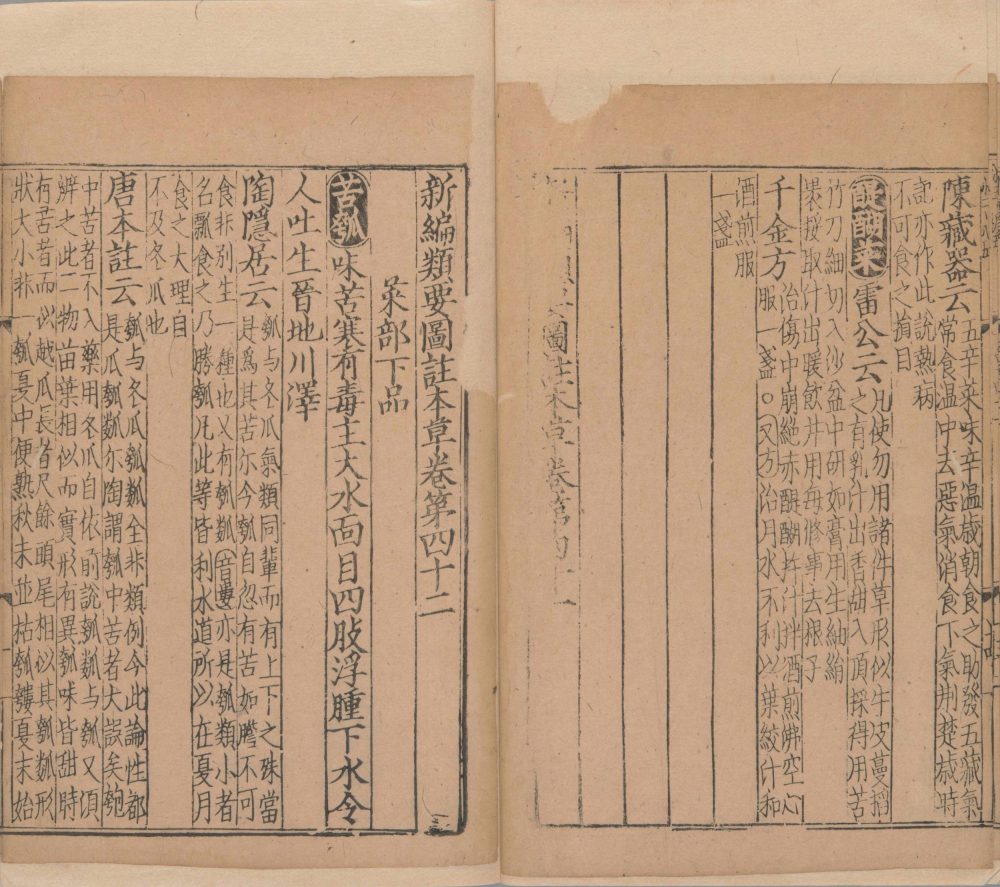 陳藏器云五辛菜味辛温歲朝食之助發五藏氣
常食温中去惡氣消食下氣荆楚歲時
記亦作此說熱病
不可食之損目
醍醐菜雷公云凡使勿用諸件草形似牛皮蔓搯
之有乳汁出香甜入頂採得用苦
竹刀細切入沙盆中研如膏用生紬絹
裛挼取汁出暖飲并用每修事去根子
千金方治傷中崩絕赤醍醐杵汁拌酒煎沸空心
服一盞○又方治月水不利以葉絞汁和
酒煎服
一盞
圖註本草卷第四十一
新編類要圖註本草卷第四十二
菜部下品
苦瓠味苦寒有毒主大水面目四肢浮腫下水令
人吐生晉地川澤
陶隱居云瓠与冬瓜氣類同輩而有上下之殊當
是爲其苦尔今瓠自忽有苦如膽不可
食非別生一種也又有瓠㼐(音婁)亦是瓠類小者
名瓢食之乃勝瓠凡此等皆利水道所以在夏月
食之大理自
不及冬瓜也
唐本註云瓠与冬瓜瓠㼐全非類例今此論性都
是瓜瓠㼐尔陶謂瓠中苦者大誤矣瓠
中苦者不入藥用冬瓜自依前說瓠㼐与瓠又須
辨之此二物苗葉相似而實形有異瓠味皆甜時
有苦者而以越瓜長者尺餘頭尾相似其瓠㼐形
狀大小非一瓠夏中便熟秋末並枯瓠㼐夏末始